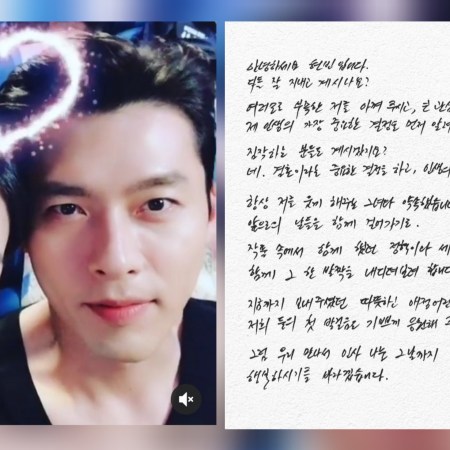 안녕하세요 현빈입니다.
다들 잘 지내고 계시나요?
여러모로 부족한 저를 아껴 주시고, 큰 관심
제 인생의 가장 중요한 결정을 먼저 알려
짐작하는 분들도 계시겠지요?
네. 결혼이라는 중요한 결정을 하고, 인생의
항상 저를 웃게 해주는 그녀와 약속했습니다
앞으로의 날들을 함께 걸어가기로.
작품 속에서 함께 했던 정혁이와 세
함께 그 한 발짝을 내디뎌보려 합니다
지금까지 보내주셨던 따뜻하고 애정어린
저희 둘의 첫 발걸음도 기쁘게 응원해
그럼 우리 만나서 인사 나눌 그날까지
행복하시기를 바라겠습니다.